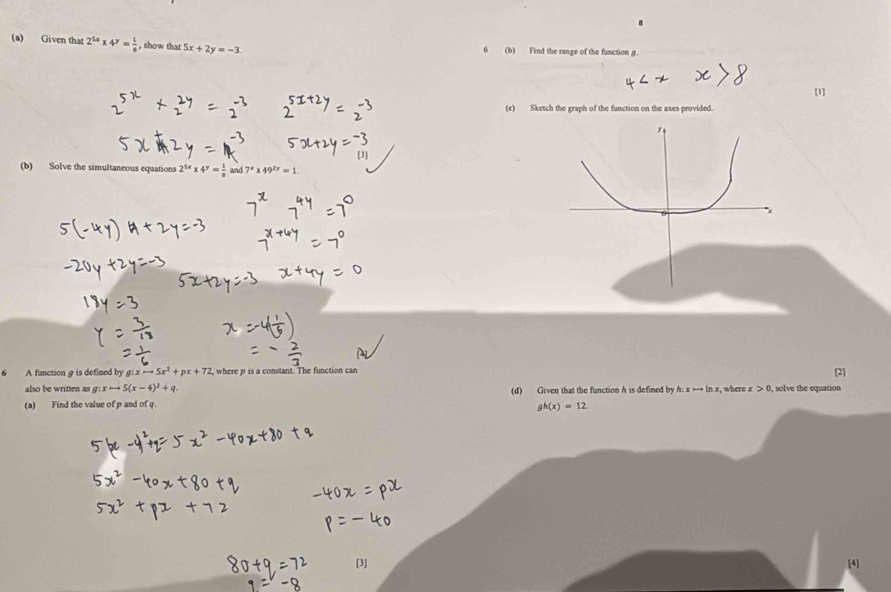 (a) Given that 2^{5x} x 4^y = 1/8, show that 5x + 2y = −3.
2^{5x} × 2^{2y} = 2^{-3}
2^{5x+2y} = 2^{-3}
5x + 2y = -3
5x+2y = -3
[3]
(b) Solve the simultaneous equations 2^{5x} x 4^y = 1/8 and 7^x x 49^{2y} = 1.
7^x 7^{4y} = 7^0
5(-4y) + 2y = -3
7^{x+4y} = 7^0
-20y + 2y = -3
5x+2y = -3
x+4y = 0
18y = 3
y = 3/18
= 1/6
x = -4(1/5)
= - 2/3
6 A function g is defined by g: x ↦ 5x² + px + 72, where p is a constant. The function can
also be written as g: x ↦ 5(x − 4)² + q.
(a) Find the value of p and of q.
5(x -4)²+q = 5x² -40x+80 +q
5x² -40x+80+q
5x² + px +72
-40x = px
p = -40
80+q = 72
q = -8
[3]
8
6 (b) Find the range of the function g.
4 < x x > 8
[1]
(c) Sketch the graph of the function on the axes provided.
y
0
x
[2]
(d) Given that the function h is defined by h: x ↦ ln x, where x > 0, solve the equation
gh(x) = 12.
[4]